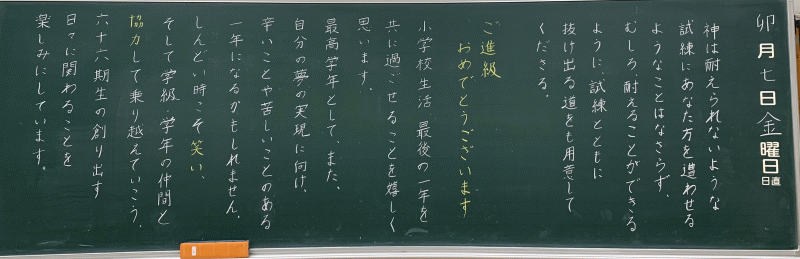 卯月七日金曜日
日直
神は耐えられないような
試練にあなた方を遭わせる
ようなことはなさらず、
むしろ、耐えることができる
ように、試練とともに
抜け出る道をも用意して
くださる。
ご進級
おめでとうございます
小学校生活最後の一年を
共に過ごせることを嬉しく
思います。
最高学年として、また、
自分の夢の実現に向け、
辛いことや苦しいことのある
一年になるかもしれません。
しんどい時こそ笑い、
そして学級、学年の仲間と
協力して乗り越えていこう。
六十六期生の創り出す
日々に関わることを
楽しみにしています。